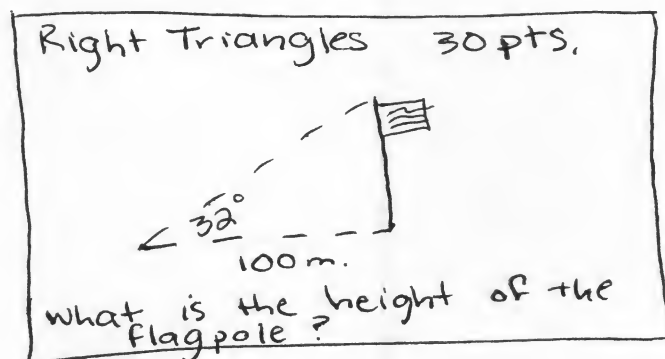 Right Triangles 30 pts.
32°
100 m.
what is the height of the
flagpole?